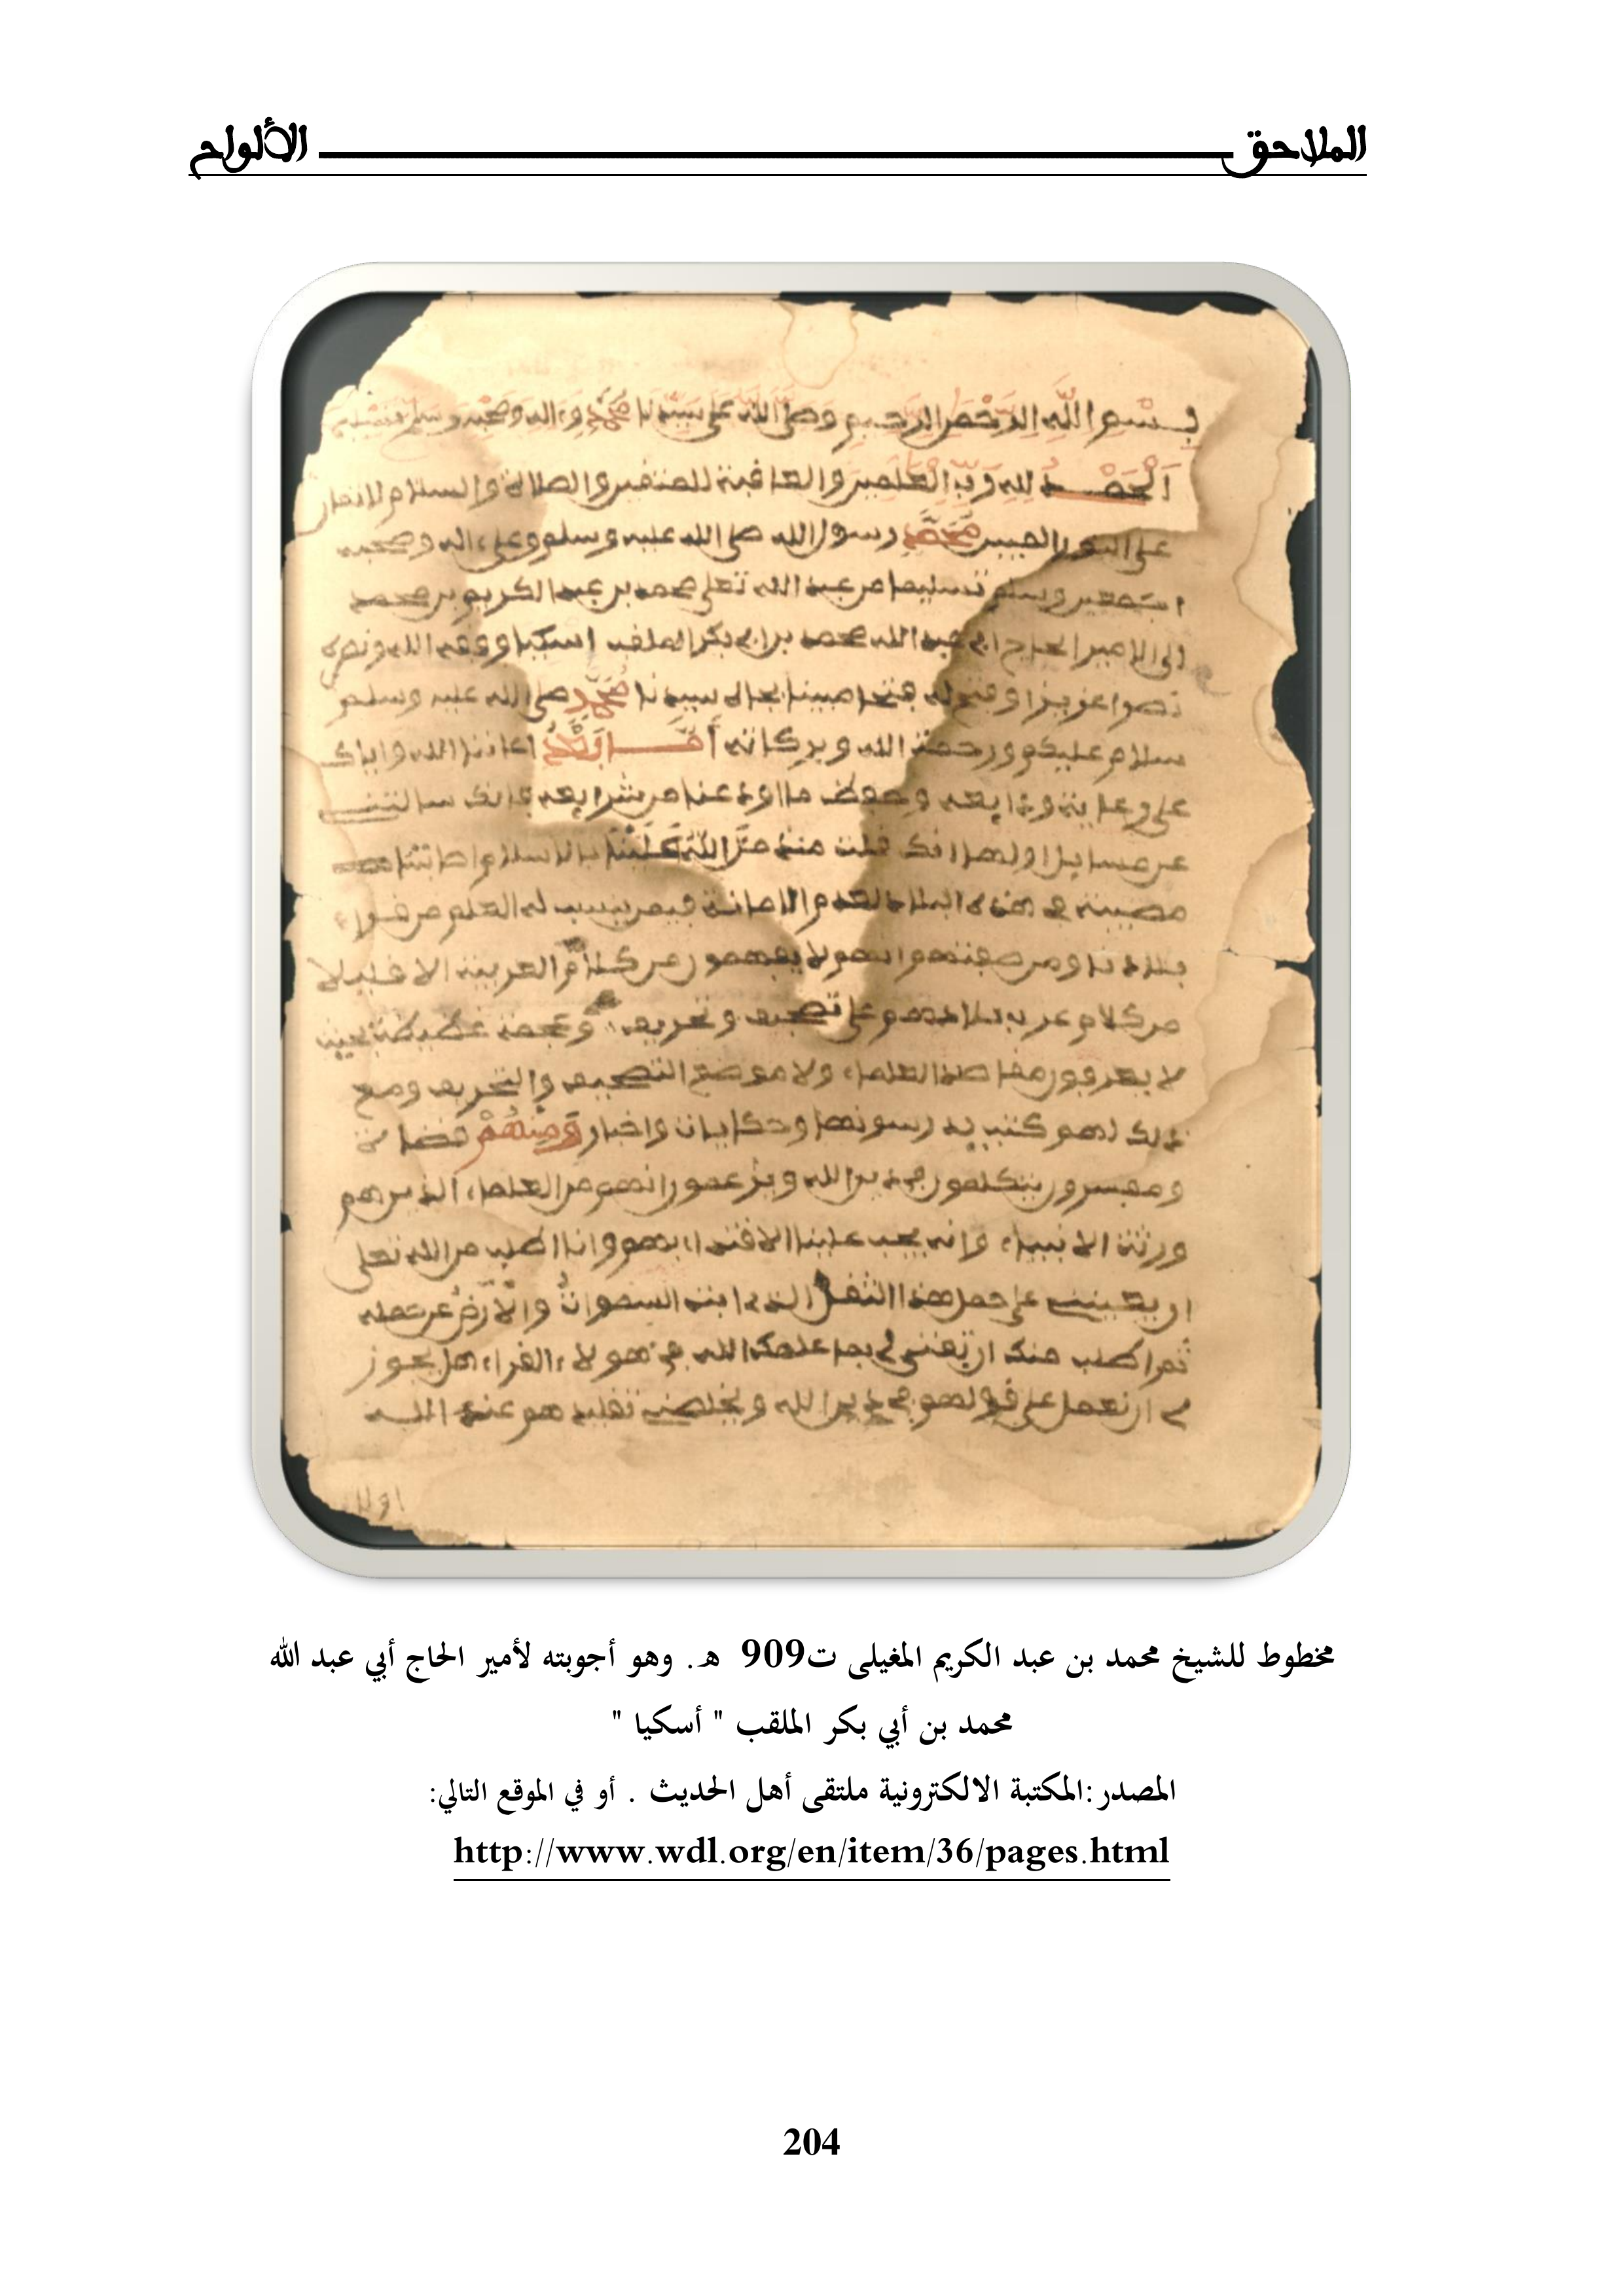 الملاحق الألواح
بسم الله الرحمن الرحيم وصلى الله على سيدنا محمد وءاله وصحبه وسلم تسليما
الحمد لله رب العلمين والعاقبة للمتقين والصلاة والسلام
على رسول الله صلى الله عليه وسلم وعلى ءاله وصحبه
اجمعين وسلم تسليما من عبد الله تعلى محمد بن عبد الكريم بن محمد
الى الامير الحاج ابي عبد الله محمد بن ابي بكر الملقب اسكيا ووفقه الله ونصره
نصرا عزيزا وفتح له فتحا مبينا بجاه سيدنا محمد صلى الله عليه وسلم
سلام عليكم ورحمة الله وبركاته أما بعد اعاننا الله واياك
على رعاية ودايعه وحفظ ما اودعنا من شرايعه فانك سالتني
عن مسايل اولها انك قلت منذ من الله علينا بالاسلام اصابتنا
مصيبة في هذه البلاد لعدم الامانة فيمن ينسب له العلم من قراء
بلادنا ومن صفتهم انهم لا يفهمون من كلام العربية الا قليلا
من كلام عرب بلادهم على تصحيف وتحريف وعجمة عظيمة بحيث
لا يعرفون مقاصد العلماء ولا موضع التصحيف والتحريف ومع
ذلك لهم كتب يدرسونها وحكايات واخبار ومنهم قضاة
ومفسرون يتكلمون في دين الله ويزعمون انهم من العلماء الذين هم
ورثة الانبياء وانه يجب علينا الاقتداء بهم وانا اطلب من الله تعلى
ان يعينني على حمل هذا الثقل الذي ابته السموات والارض عن حمله
ثم اطلب منك ان تفتني بما علمك الله في هولاء القراء هل يجوز
لي ان نعمل على قولهم في دين الله ويخلصني تقليدهم عند الله
مخطوط للشيخ محمد بن عبد الكريم المغيلى ت909 هـ. وهو أجوبته لأمير الحاج أبي عبد الله
محمد بن أبي بكر الملقب " أسكيا "
المصدر :المكتبة الالكترونية ملتقى أهل الحديث . أو في الموقع التالي:
http://www.wdl.org/en/item/36/pages.html
204